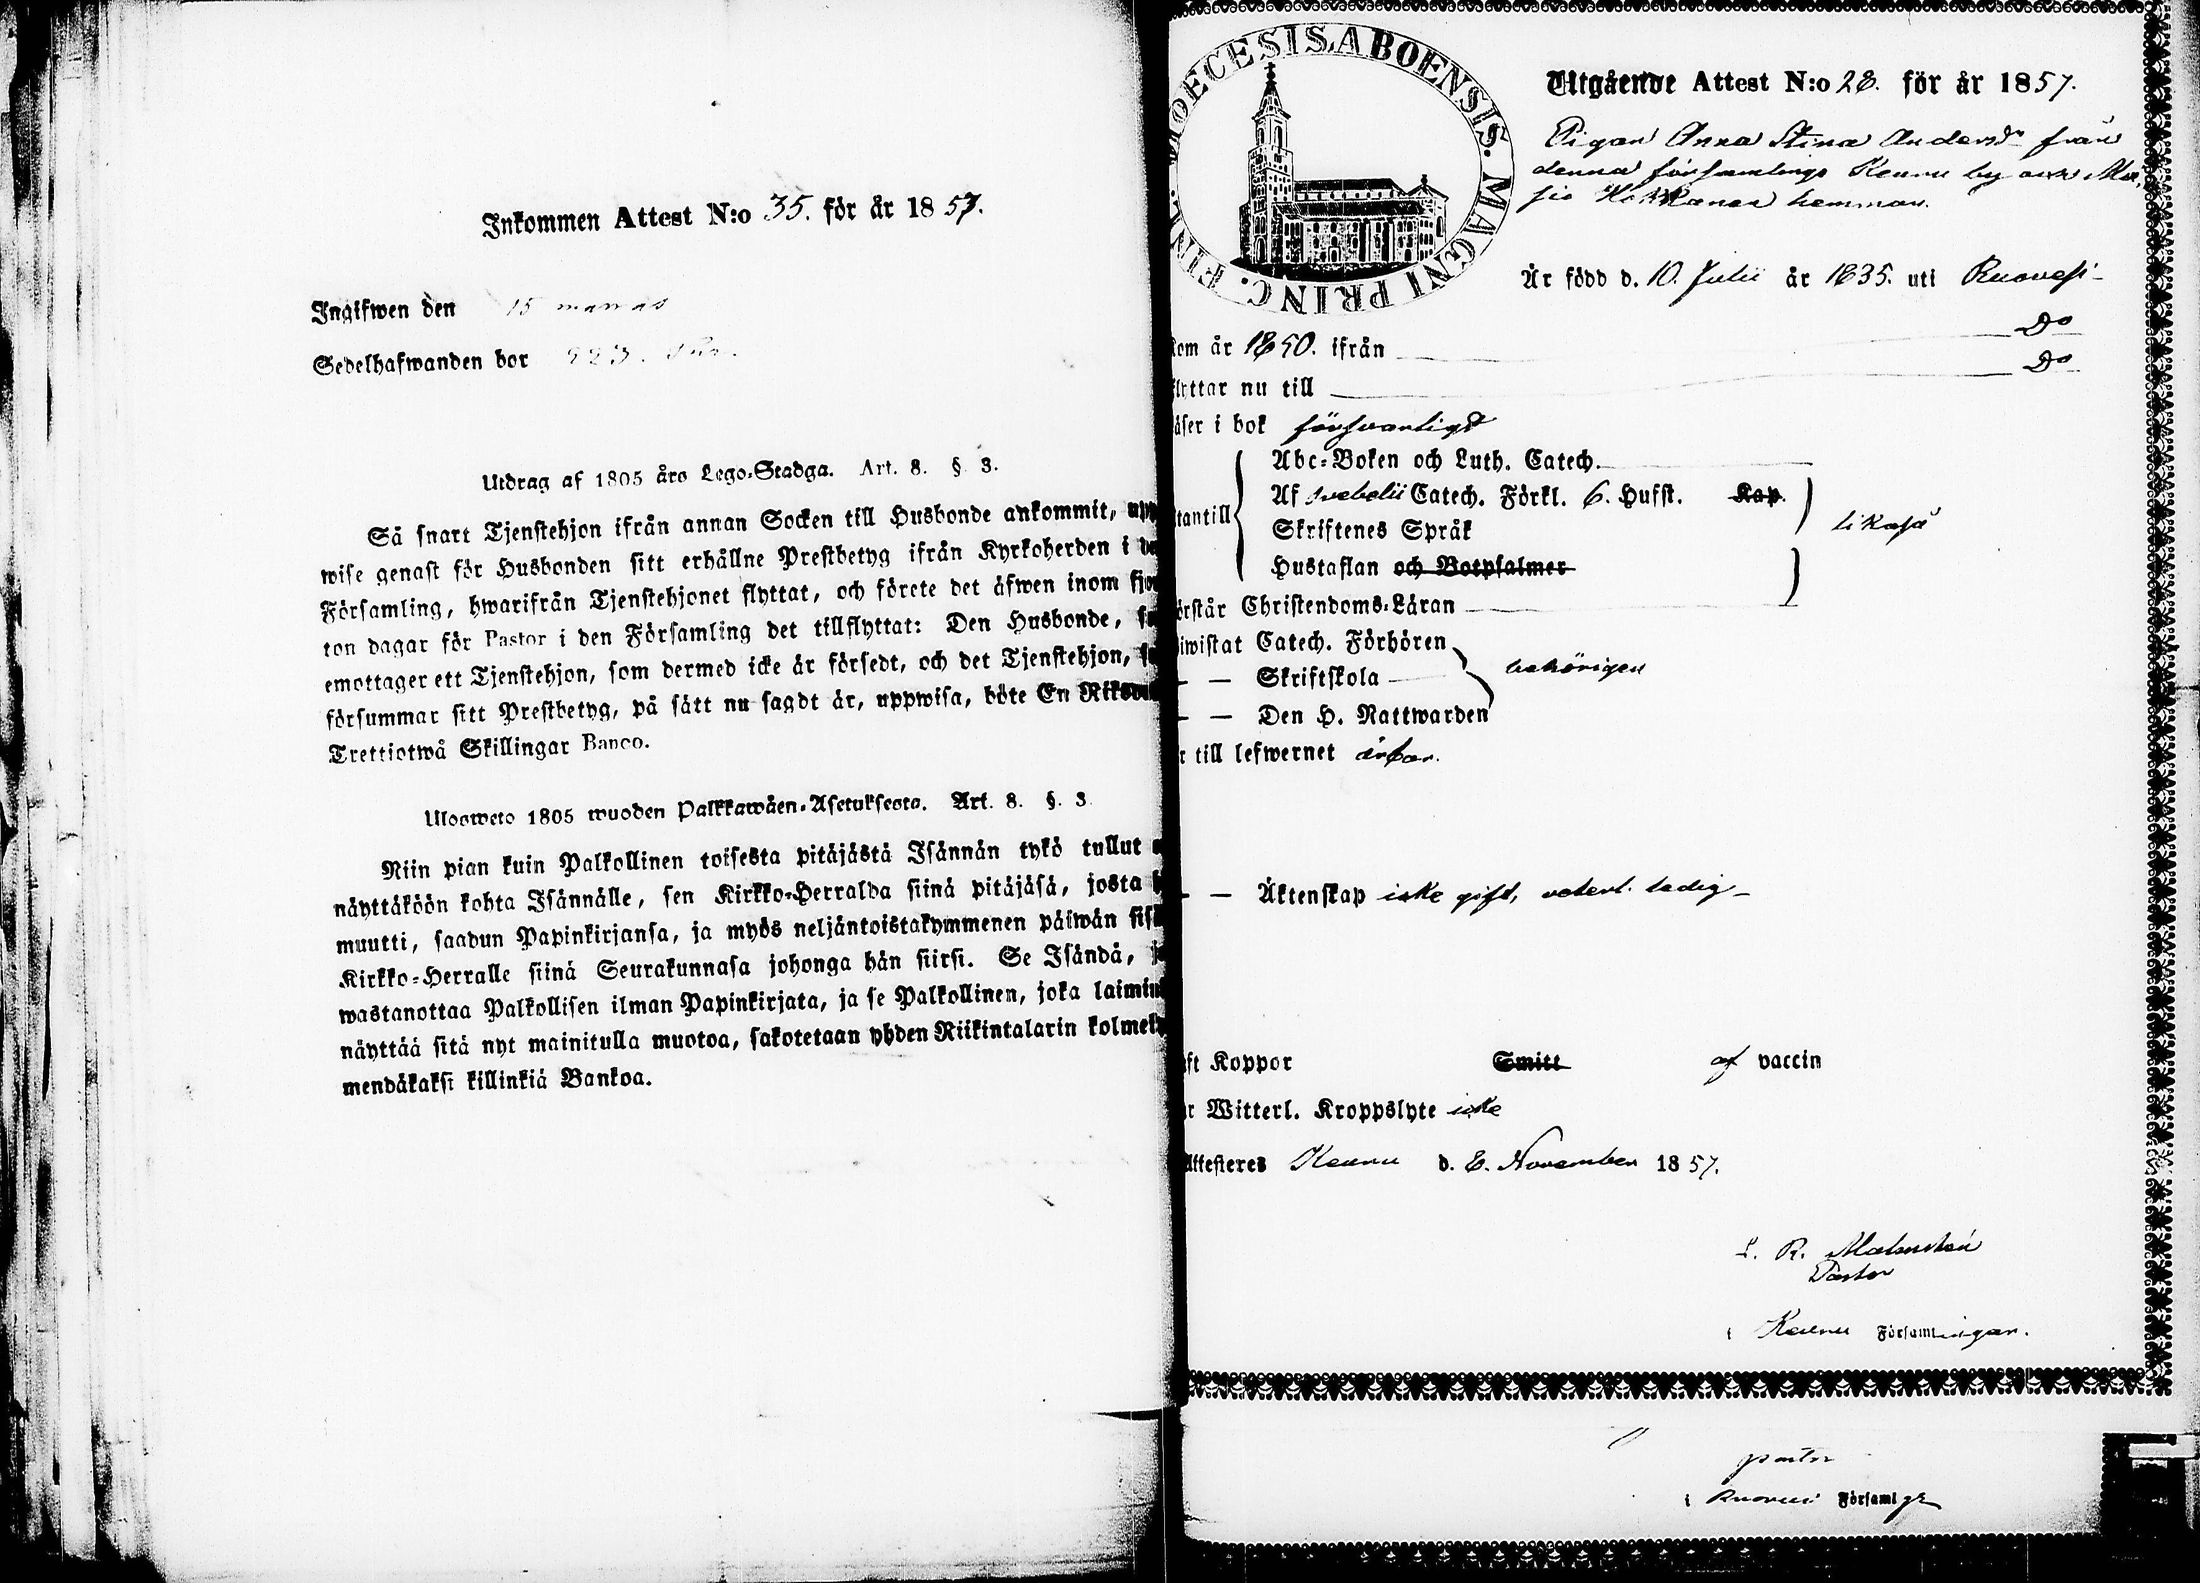 Inkommen Attest N:o 35. för år 1857.
Ingifwen den 15
Sedelhafwanden bor
Utdrag af 1805 års Lego-Stadga. Art. 8. § 3.
Så snart Tjenstehjon ifrån annan Socken till Husbonde ankommit,
wise genast för Husbonden sitt erhållne Prestbetyg ifrån Kyrkoherden i
Församling, hwarifrån Tjenstehjonet flyttat, och förete det äfwen inom
ton dagar för Pastor i den Församling det tillflyttat: Den Husbonde,
emottager ett Tjenstehjon, som dermed icke är försedt, och det Tjenstehjon,
försummar sitt Prestbetyg, på sätt nu sagdt är, uppwisa, böte En
Trettiotwå Skillingar Banco.
Ulosweto 1805 wuoden Palkkawäen-Asetuksesta. Art. 8. §. 3
Niin pian kuin Palkollinen toisesta pitäjästä Isännän tykö tullut
näyttäköön kohta Isännälle, sen Kirkko-Herralda siinä pitäjäsä, josta
muutti, saadun Papinkirjansa, ja myös neljäntoistakymmenen päiwän
Kirkko-Herralle siinä Seurakunnasa johonga hän siirsi. Se Isändä,
wastanottaa Palkollisen ilman Papinkirjata, ja se Palkollinen, joka
näyttää sitä nyt mainitulla muotoa, sakotetaan yhden Riikintalarin
mendäkaksi killinkiä Bankoa.
DIOECESIS ABOENSIS. MAGNI PRINC. FINL.
Utgående Attest N:o 28. för år 1857.
Pigan Anna Stina Andersdr från
denna församlings Keuru by och
hemman.
Är född d. 10. Julii år 1835. uti Ruovesi
kom år 1850. ifrån Do
flyttar nu till Do
läser i bok försvarligt
Abc-Boken och Luth. Catech.
Af Svebelii Catech. Förkl. 6. Hufst. Kap.
utantill Skriftenes Språk likaså
Hustaflan och Botpsalmer
förstår Christendoms-Läran
biwistat Catech. Förhören
— — Skriftskola behörigen
— — Den H. Nattwarden
är till lefwernet ärbar.
— — Äktenskap icke gift, veterl. ledig
haft Koppor Smitt af vaccin
har Witterl. Kroppslyte icke
Attesteres Keuru d. 8. November 1857.
Pastor
i Keuru Församlingar.
pastor
i Ruovesi Församl